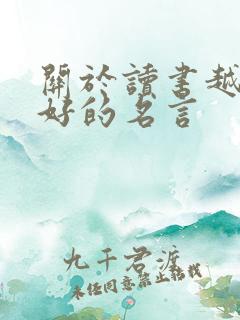 關於讀書越
好的名言
九千君渡
未经同意禁止转载